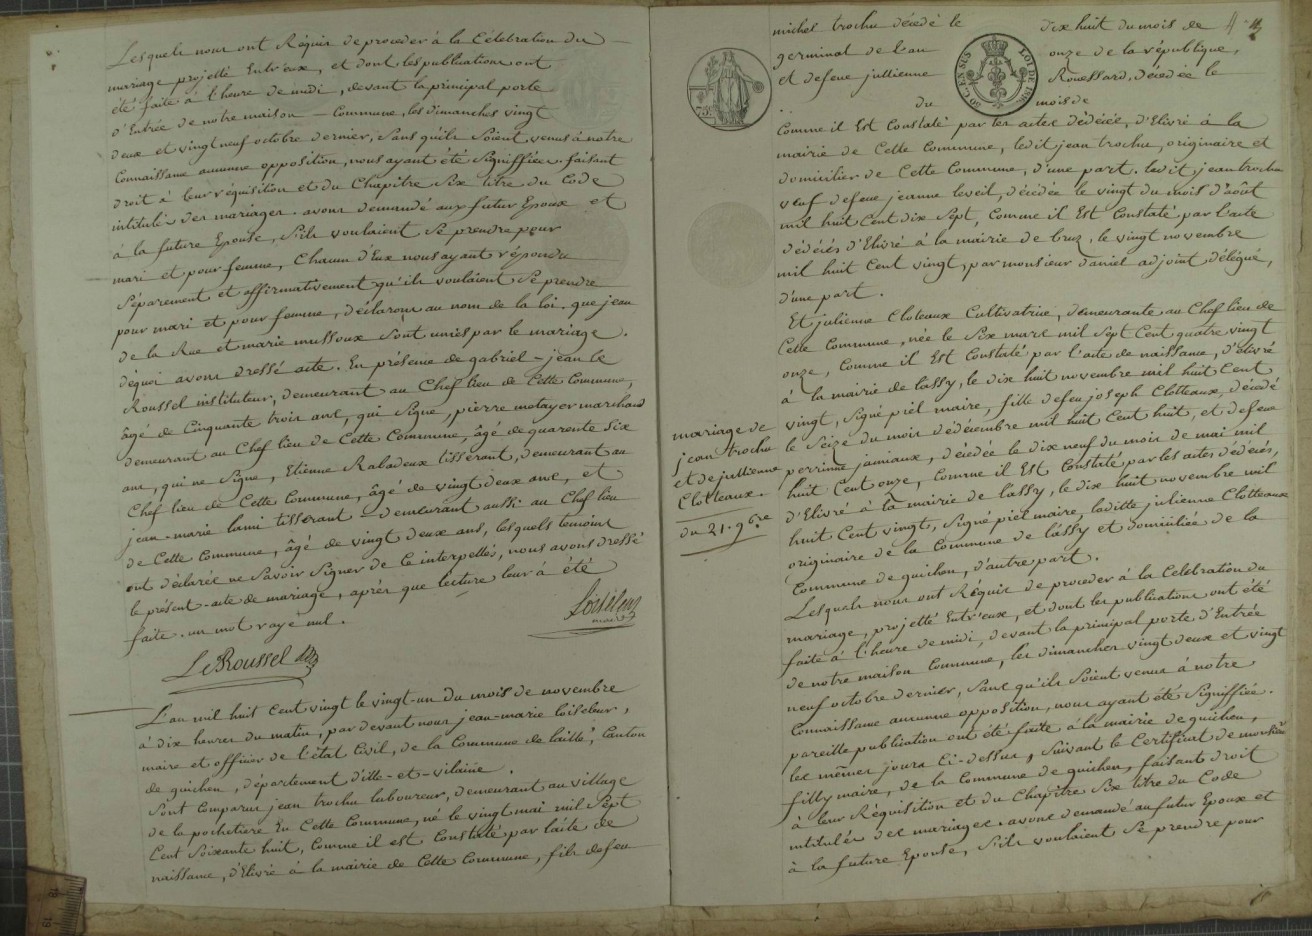 Lesquels nous ont Réquis de proceder à la Célébration du
mariage projetté Entr'eux, et dont les publications ont
été faite à l'heure de midi, devant la principal porte
d'Entrée de notre maison - Commune, les dimanches vingt
deux et vingt neuf octobre dernier, Sans qu'ils Soient venus à notre
Connaissance aucunne opposition, nous ayant été Signiffiée. faisant
droit à leur réquisition et du Chapitre Six titre du Code
intitulé Des mariages. avons demandé aux futur Epoux et
à la future Epouse, S'ils voulaient Se prendre pour
mari et pour femme, Chacun d'Eux nous ayant répondu
Séparement et affirmativement qu'ils voulaient Se prendre
pour mari et pour femme, déclarons au nom de la loi. que jean
de la Rue et marie mussoux Sont unis par le mariage.
déquoi avons dressé acte. En présence de gabriel - jean le
Roussel instituteur, demeurant au Chef lieu de Cette Commune,
âgé de Cinquante trois ans, qui Signe, pierre metayer marchand
demeurant au Chef lieu de Cette Commune, âgé de quarente Six
ans, qui ne Signe, Etienne Rabadeux tisserant, demeurant au
Chef lieu de Cette Commune, âgé de vingt deux ans, et
jean-marie lami tisserant - demeurant aussi au Chef lieu
de Cette Commune, âgé de vingt deux ans, lesquels temoins
ont déclarés ne Savoir Signer de Ce interpellés, nous avons dressé
le présent-acte de mariage, après que lecture leur à été
faite. un mot rayé nul.
maire
Le Roussel
L'an mil huit Cent vingt le vingt-un du mois de novembre
à dix heures du matin, par devant nous jean-marie loiseleur,
maire et officier de l'état Civil, de la Commune de laillé, Canton
de guichen, département d'ille-et-vilaine.
Sont Comparus jean trochu laboureur, demeurant au village
de la pochetiere En Cette Commune, né le vingt mai mil Sept
Cent Soixante huit, Comme il est Constaté par l'acte de
naissance, d'Elivré à la mairie de Cette Commune, fils defeu
michel trochu décédé le dix huit du mois de
germinal de l'an onze de la république,
et defeue jullienne Rouessard, décédée le
du mois de
Comme il Est Constaté par les actes dédécée, d'Elivré à la
mairie de Cette Commune, ledit jean trochu, originaire et
domicilier de Cette Commune, d'une part. ledit jean trochu
veuf defeue jeanne leveil, décédée le vingt du mois d'août
mil huit Cent dix Sept, Comme il Est Constaté par l'acte
dédécés d'Elivré à la mairie de bruz, le vingt novembre
mil huit Cent vingt, par monsieur daniel adjoint délégué,
d'une part.
Et julienne Cloteaux Cultivatrice, demeurante au Chef lieu de
Cette Commune, née le Six mars mil Sept Cent quatre vingt
onze, Comme il Est Constaté par l'acte de naissance, d'élivré
à la mairie de lassy, le dix huit novembre mil huit Cent
vingt, Signé piél maire, fille defeu joseph Clotteaux, décédé
le Seize du mois dédécembre mil huit Cent huit, et defeue
perrinne jamiaux, décédée le dix neuf du mois de mai mil
huit Cent onze, Comme il Est Constaté par les actes dédécés,
d'Elivré à la mairie de lassy, le dix huit novembre mil
huit Cent vingt, Signé piél maire, laditte julienne Clotteaux
originaire de la Commune de lassy et domiciliée de la
Commune de guichen, d'autre part.
mariage de
jean trochu
et de jullienne
Clotteaux.
du 21. 9bre
Lesquels nous ont Réquis de proceder à la Celebration du
mariage, projetté Entr'eux, et dont les publications ont été
faite à l'heure de midi, devant la principal porte d'Entrée
de notre maison Commune, les dimanches vingt deux et vingt
neuf octobre dernier, Sans qu'ils Soient venus à notre
Connaissance aucunne opposition, nous ayant été Signiffiée.
pareille publication ont été faite à la mairie de guichen,
les mêmes jours Ci-dessus, Suivant le Certificat de monsieur
filly maire, de la Commune de guichen, faisant droit
à leur Réquisition et du Chapitre Six titre du Code
intitulés des mariages. avons demandé au futur Epoux et
à la future Epouse, S'ils voulaient Se prendre pour